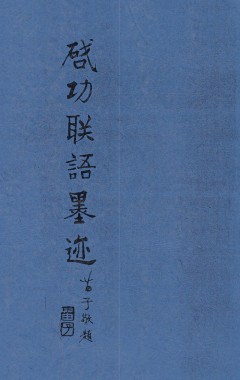 啓功联語墨迹
苗子敬題